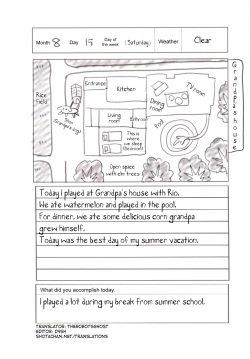 Month 8 Day 19 Day of the week (Saturday) Weather Clear
Grandpa's house
Entrance
Kitchen
TV room
Dining room
Rice field
Grandpa's dog!
Living room
Bathroom
Pool
This is where we sleep (Bedroom)
Open space with elm trees
Today I played at Grandpa's house with Rio.
We ate watermelon and played in the pool.
For dinner, we ate some delicious corn grandpa
grew himself.
Today was the best day of my summer vacation.
What did you accomplish today.
I played a lot during my break from summer school.
TRANSLATOR: THEROBOTSGHOST
EDITOR: INSH
SHOTACHAN.NET/TRANSLATIONS